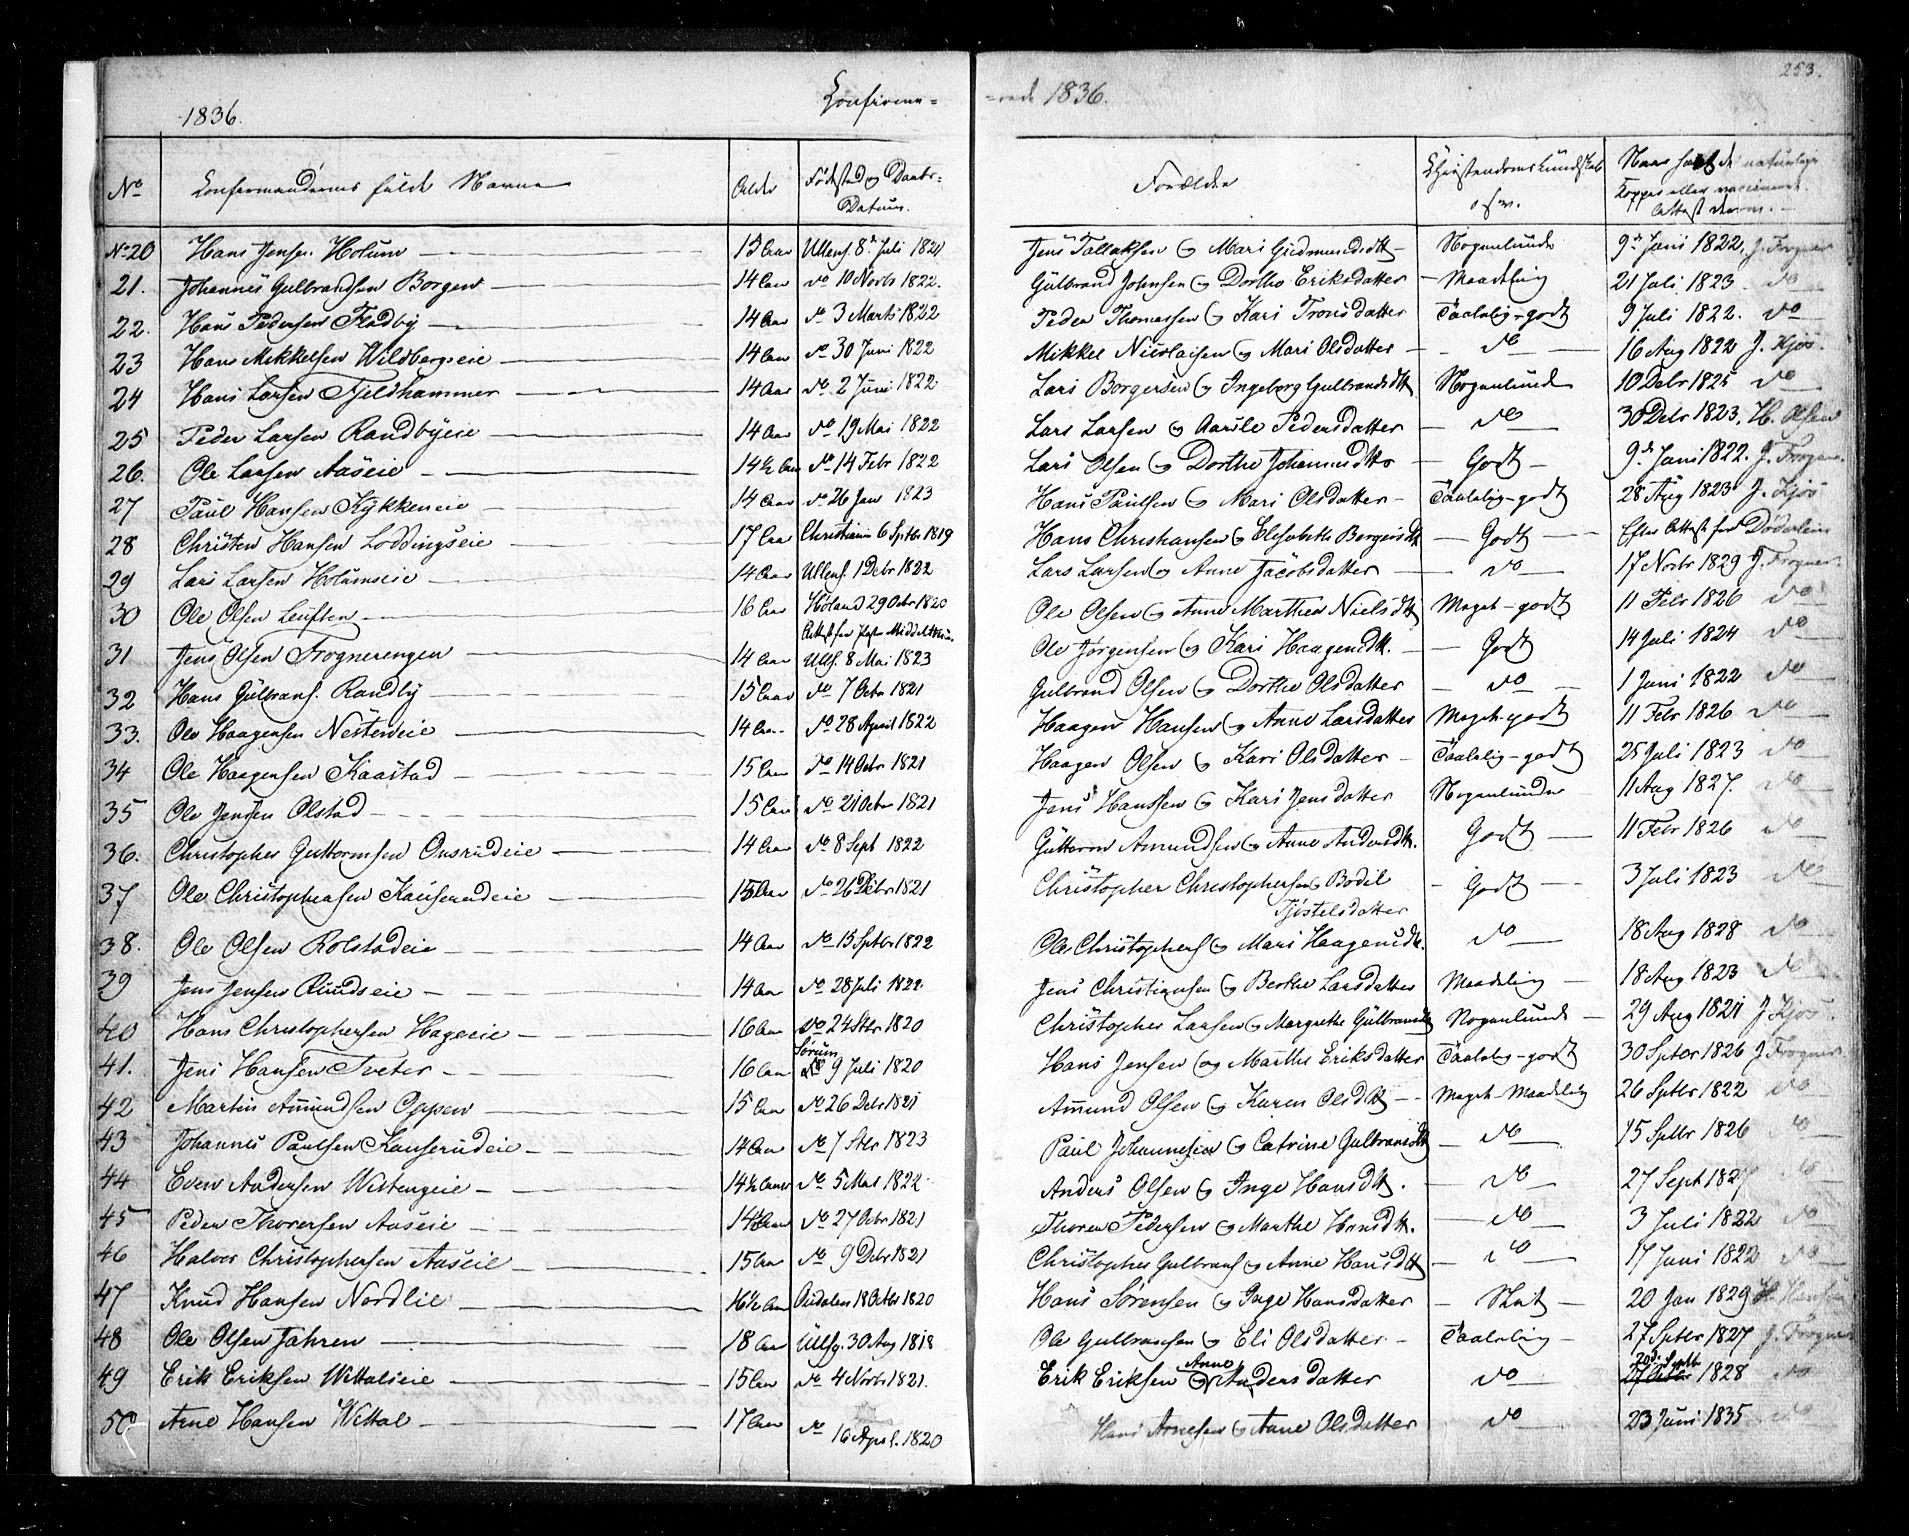 253.
1836. Confirme=
=rede 1836.
No Confirmandernes fulde Navne Alder Fødested og Daabs= Datum. Forældre Christendomskundskab o.s.v. Naar havt de naturlige Kopper eller vaccineret. Attest derom.
No 20 Hans Jensen Holum 15 Aar Ullens. 8de Juli 1821 Jens Tallaksen og Mari Gudmundsdtt Nogenlunde 9de Juni 1822. J. Frogner
21. Johannes Gulbrandsen Borgen 14 Aar do 10 Novbr 1822. Gülbrand Johnsen og Dorthe Eriksdatter Maadelig 21 Juli 1823 do
22. Hans Pedersen Fladby 14 Aar do 3 Marts 1822 Peder Thomassen og Kari Tronsdatter Taalelig-godt 9 Juli 1822. do
23 Hans Mikkelsen Wildbergseie 14 Aar do 30 Juni 1822 Mikkel Nicolaisen og Mari Olsdatter do 16 Aug 1822 J. Kjøs.
24 Hans Larsen Fjeldhammer 14 Aar do 2 Juni 1822 Lars Borgersen og Ingeborg Gulbrandsdtt Nogenlund 10 Debr 1825 do
25 Peder Larsen Randbyeie 14 Aar do 19 Mai 1822 Lars Larsen og Aasile Pedersdatter do 30 Debr 1823. H. Olsen
26. Ole Larsen Aaseie 14½ Aar do 14 Febr 1822 Lars Olsen og Dorthe Johannesdtt Godt 9de Juni 1822. J. Frogner
27 Paul Hansen Kykkeneie 14 Aar do 26 Jan 1823 Hans Paulsen og Mari Olsdatter Taalelig-godt 28 Aug 1823 J. Kjøs
28 Christen Hansen Loddingseie 17 Aar Christiania 6 Septbr 1819 Hans Christiansen og Elisabeth Borgersdtt Godt Efter Attest fra Døderlein
29 Lars Larsen Holumseie 14 Aar Ullens. 1 Debr 1822 Lars Larsen og Anne Jacobsdatter do 17 Novbr 1829 J. Frogner
30 Ole Olsen Leuften 16 Aar Høland 29 Octbr 1820 Ole Olsen og Anne Marthea Nielsdtt Meget-godt 11 Febr 1826 do
31 Jens Olsen Frognerengen 14 Aar Ulls. 8 Mai 1823 Ole Jørgensen og Kari Haagensdtt. Godt 14 Juli 1824 do
32 Hans Gülbrans. Randby 15 Aar do 7 Octbr 1821 Gulbrand Olsen og Dorthe Olsdatter do 1 Juni 1822 do
33. Ole Haagensen Nesteneie 14 Aar do 28 April 1822 Haagen Hansen og Anne Larsdatter Meget-godt 11 Febr 1826 do
34 Ole Haagensen Kaastad 15 Aar do 14 Octbr 1821 Haagen Olsen og Kari Olsdatter Taalelig-godt 25 Juli 1823 do
35 Ole Jensen Olstad 15 Aar do 21 Octbr 1821 Jens Hanssen og Kari Jensdatter Nogenlunde 11 Aug 1827. do
36. Christopher Guttormsen Onsrudeie 14 Aar do 8 Sept 1822 Guttorm Amundsen og Anne Andersdtt. Godt 11 Febr 1826 do
37 Ole Christophersen Kauserudeie 15 Aar do 26 Debr 1821 Christopher Christophersen og Bodil Tjøstelsdatter Godt 3 Juli 1823 do
38. Ole Olsen Rolstadeie 14 Aar do 15 Septbr 1822 Ole Christophers og Mari Haagensdtt. do 18 Aug 1828 do
39 Jens Jensen Rundseie 14 Aar do 28 Juli 1822 Jens Christiansen og Berthe Larsdatter Maadelig 18 Aug 1823 do
40 Hans Christophersen Hageeie 16 Aar do 24 Stbr 1820 Christopher Larsen og Margrethe Gülbransdtt Nogenlunde 29 Aug 1821 J Kjøs
41. Jens Hansen Tveter 16 Aar Sørum 9 Juli 1820 Hans Jensen og Marthe Eriksdatter Taalelig-godt 30 Septbr 1826 J Frogner
42 Martin Amundsen Oppen 15 Aar do 26 Debr 1821 Amund Olsen og Karen Olsdtt Meget-Maadelig 26 Septbr 1822 do
43 Johannes Paulsen Kauserudeie 14 Aar do 7 Stbr 1823 Paul Johannesen og Catrine Gulbransdtt do 15 Septbr 1826 do
44 Even Andersen Westengeie 14½ Aar do 5 Mai 1822 Anders Olsen og Inge Hansdtt. do 27 Sept 1827 do
45 Peder Thoresen Aaseie 14½ Aar do 27 Octbr 1821 Thorer Pedersen og Marthe Hansdtt. do 3 Juli 1822 do
46 Halvor Christophersen Aaseie 15 Aar do 9 Debr 1821 Christopher Gulbrans og Anne Hansdtt do 17 Juni 1822 do
47 Knud Hansen Nordlie 16½ Aar Audalen 18 Octbr 1820 Hans Sørensen og Inge Hansdatter Slet 20 Jan 1829 H. Hansen
48 Ole Olsen Jahren 18 Aar Ulls. 30 Aug 1818 Ole Gulbransen og Eli Olsdatter Taalelig 27 Septbr 1827 J. Frogner
49 Erik Eriksen Wettaleie 15 Aar do 4 Novbr 1821. Erik Eriksen og Anne Andersdatter do 20de Septb 1828 do
50 Arne Hansen Wettal 17 Aar do 16 April. 1820 Hans Arnesen og Anne Olsdatter do 23 Juni 1835 do